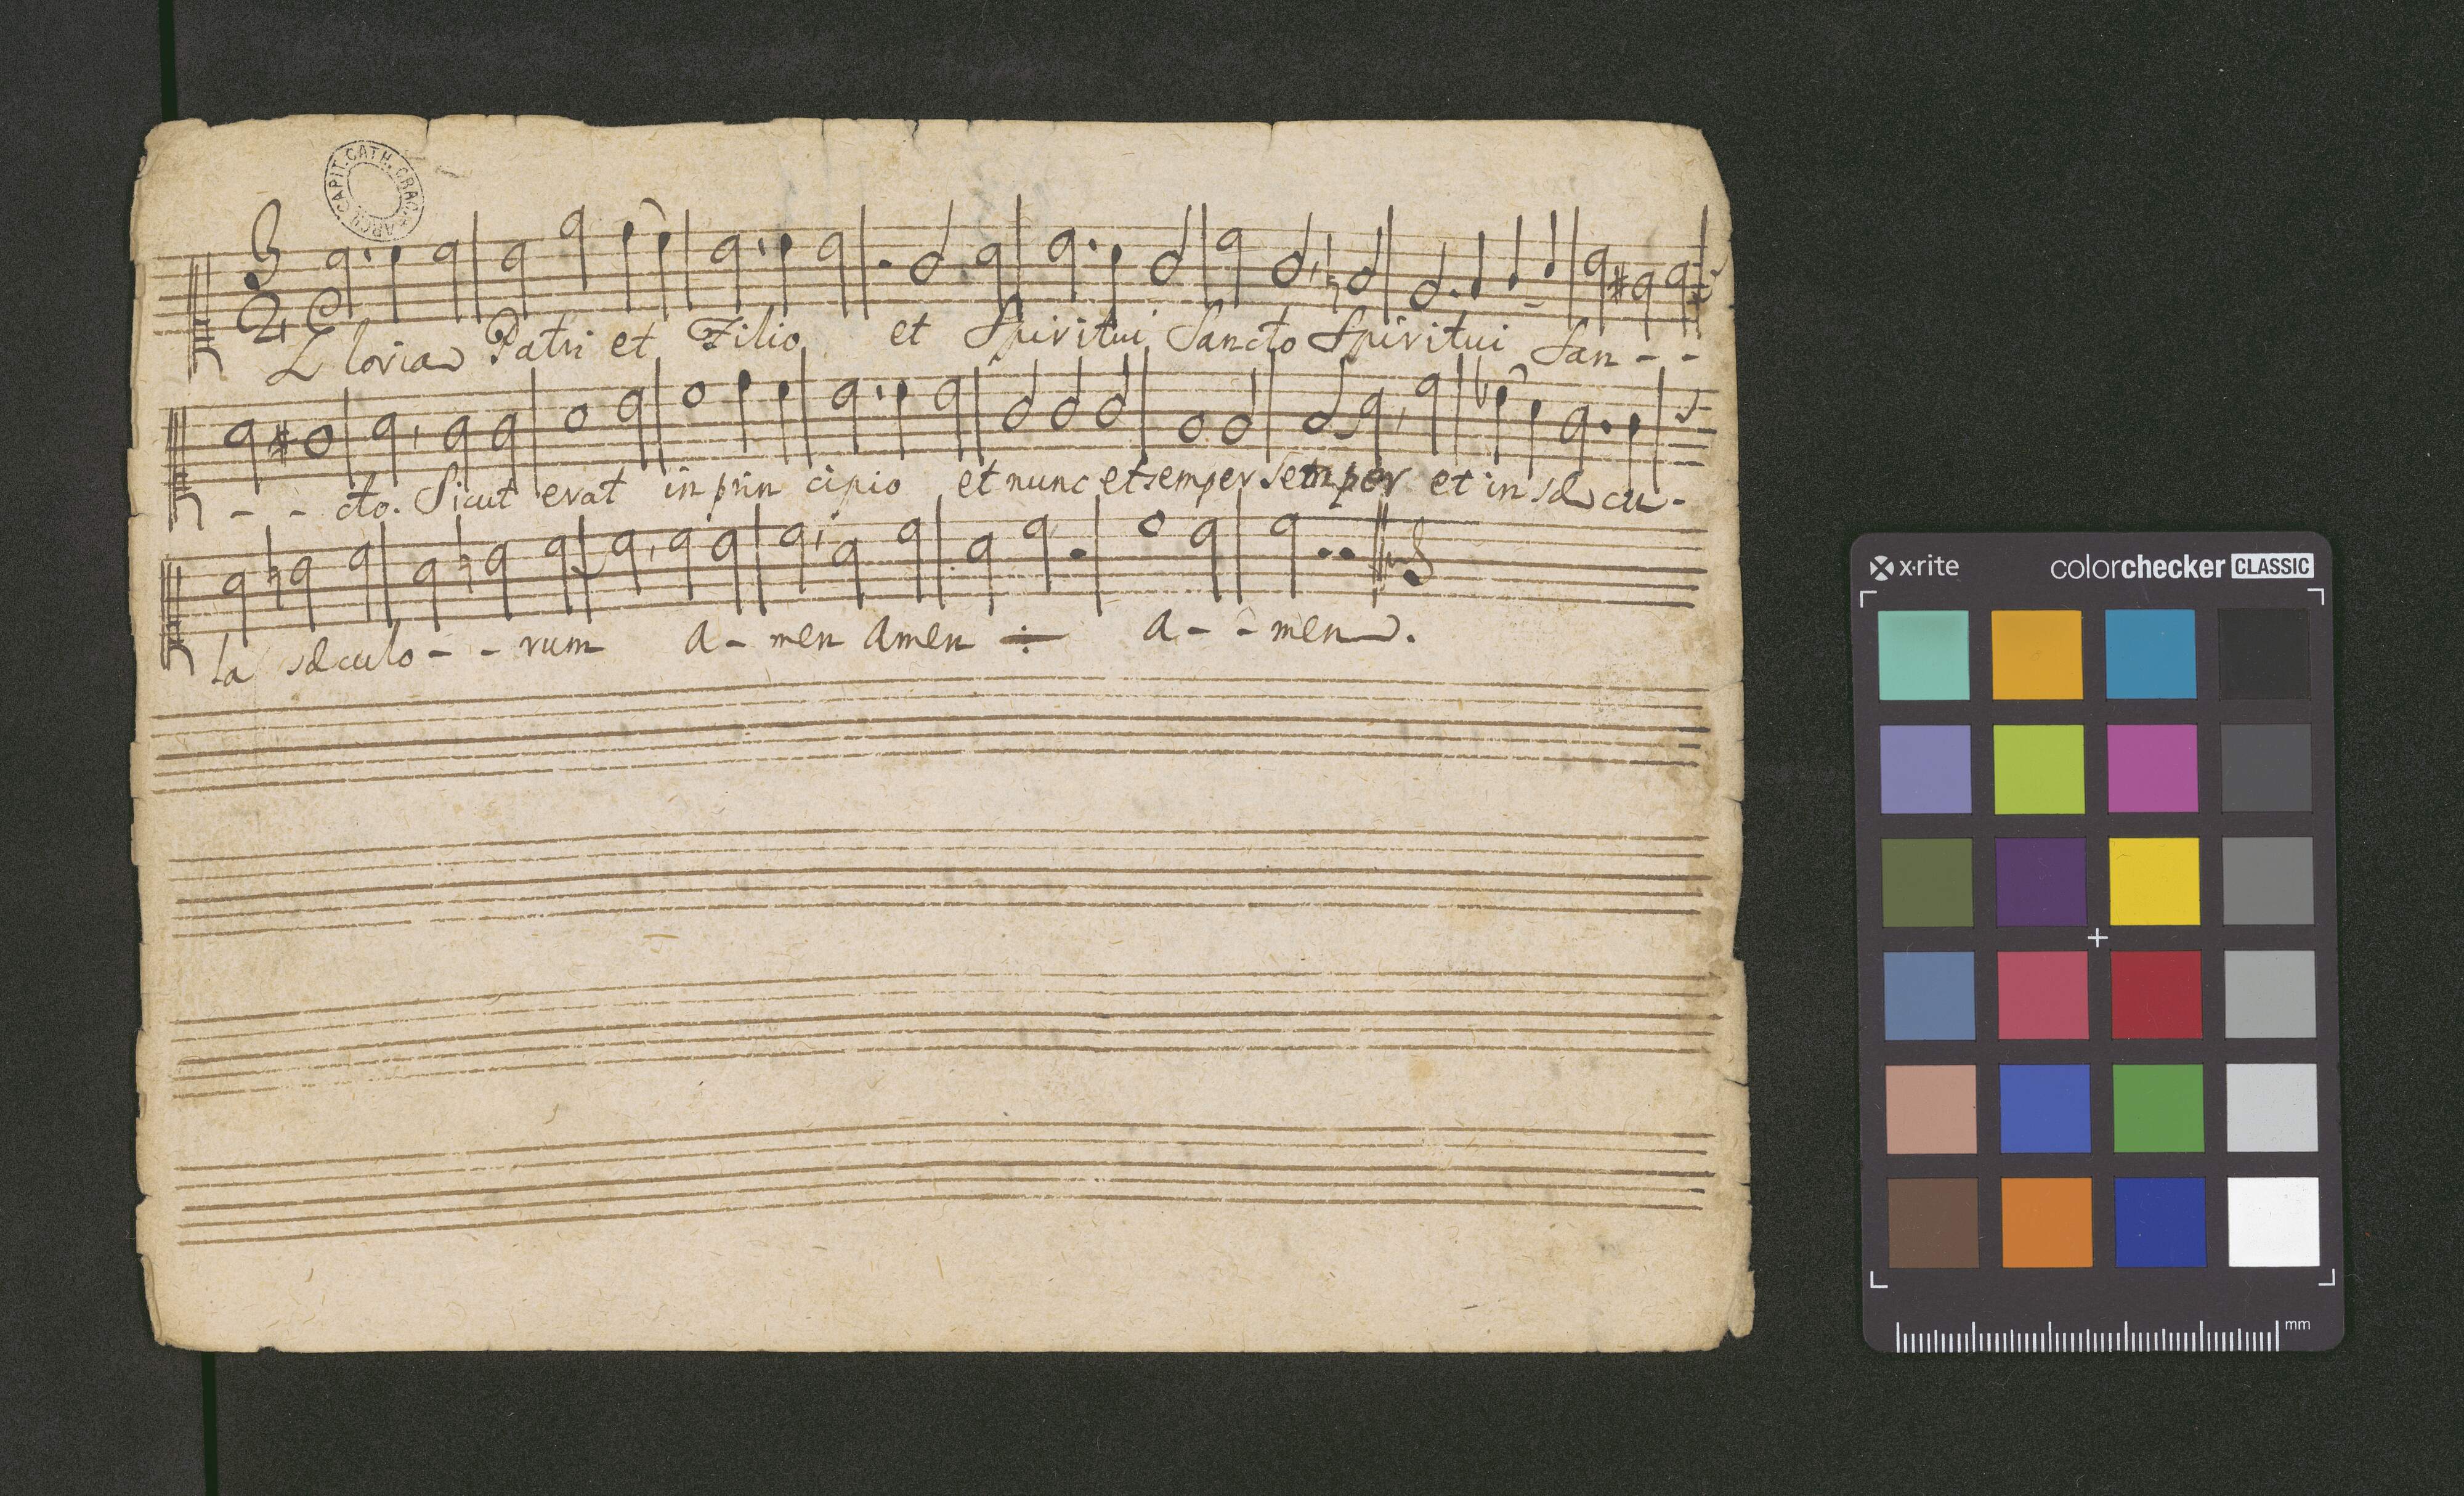 ARCH. CAPIT. CATH. CRAC.
Gloria Patri et Filio et Spiritui Sancto Spiritui San - -
- - cto. Sicut erat in prin cipio et nunc et semper semper et in sæcu-
la sæculo - - rum a - men amen ÷ a - - men.
x·rite colorchecker CLASSIC
mm